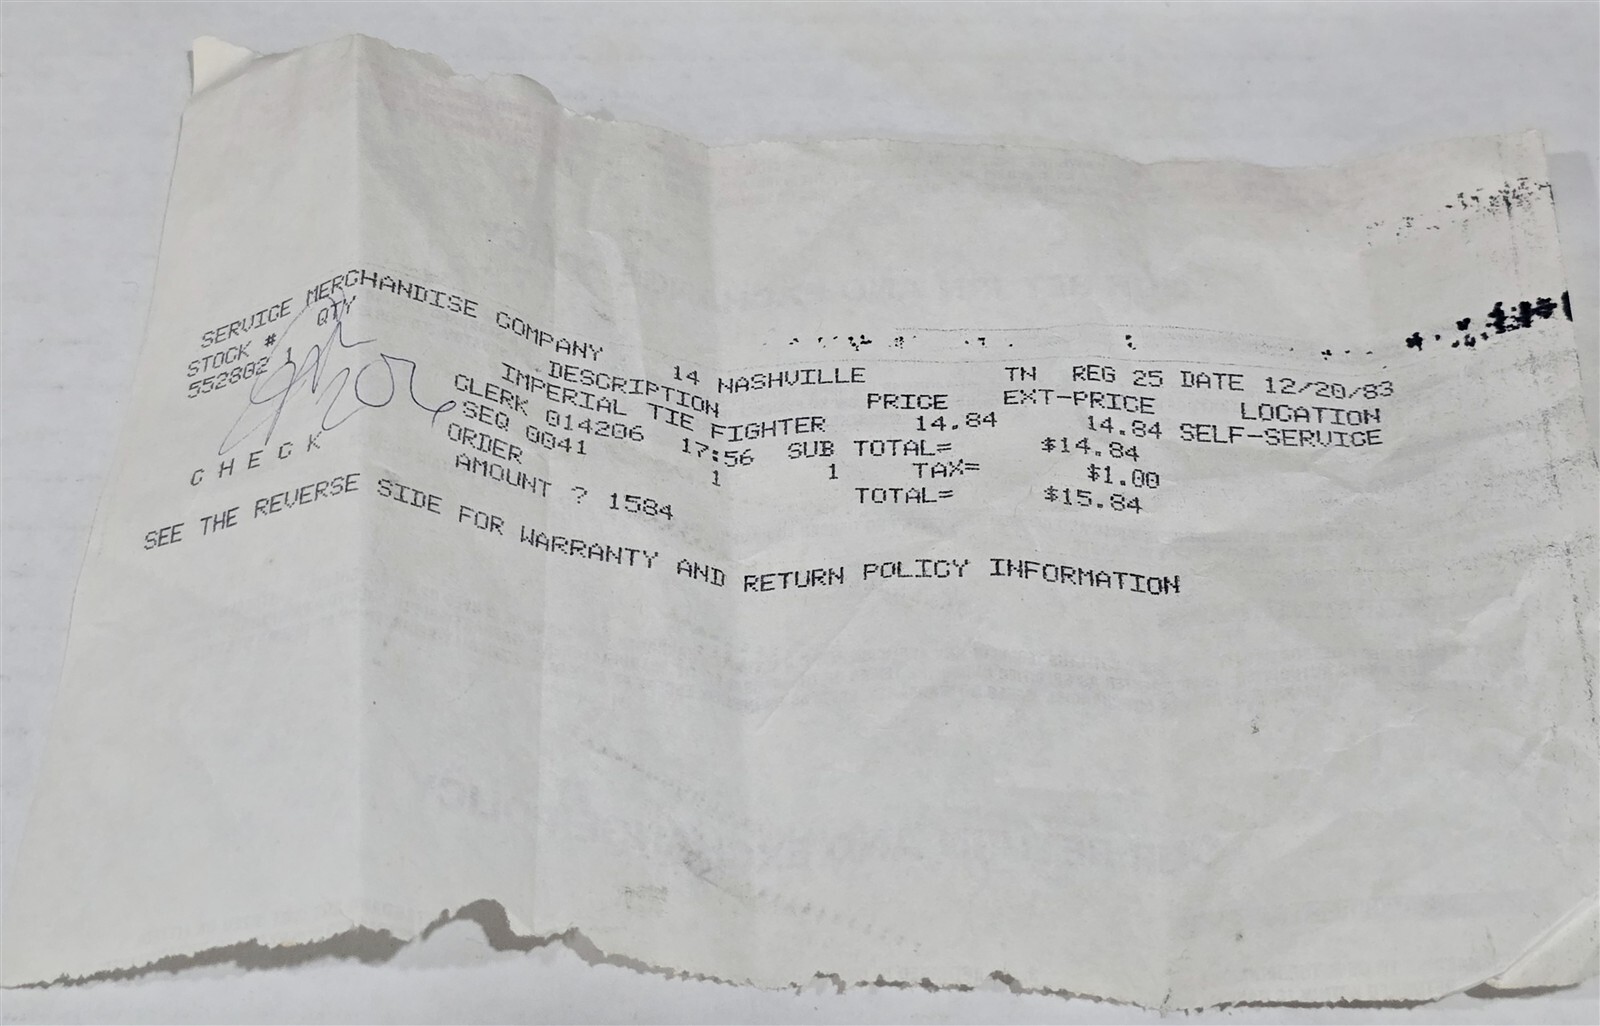 SERVICE MERCHANDISE COMPANY 14 NASHVILLE TN REG 25 DATE 12/20/83
STOCK # QTY DESCRIPTION PRICE EXT-PRICE LOCATION
552802 1 IMPERIAL TIE FIGHTER 14.84 14.84 SELF-SERVICE
CLERK 014206 17:56 SUB TOTAL= $14.84
SEQ 0041 1 1 TAX= $1.00
ORDER TOTAL= $15.84
CHECK AMOUNT ? 1584
SEE THE REVERSE SIDE FOR WARRANTY AND RETURN POLICY INFORMATION